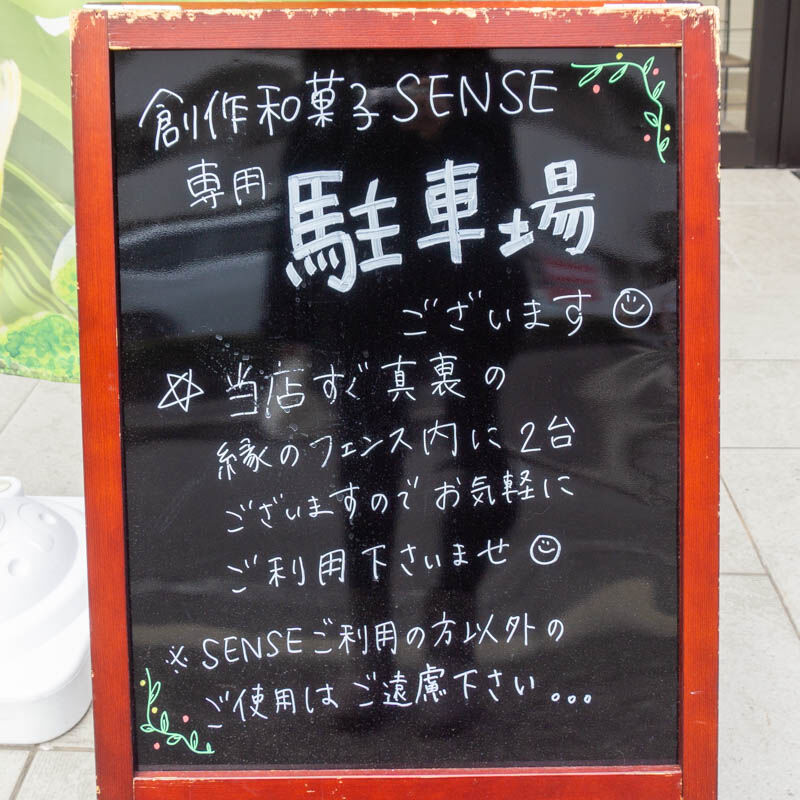 創作和菓子SENSE
専用 駐車場
ございます
☆ 当店すぐ真裏の
縁のフェンス内に2台
ございますのでお気軽に
ご利用下さいませ
※SENSEご利用の方以外の
ご使用はご遠慮下さい...